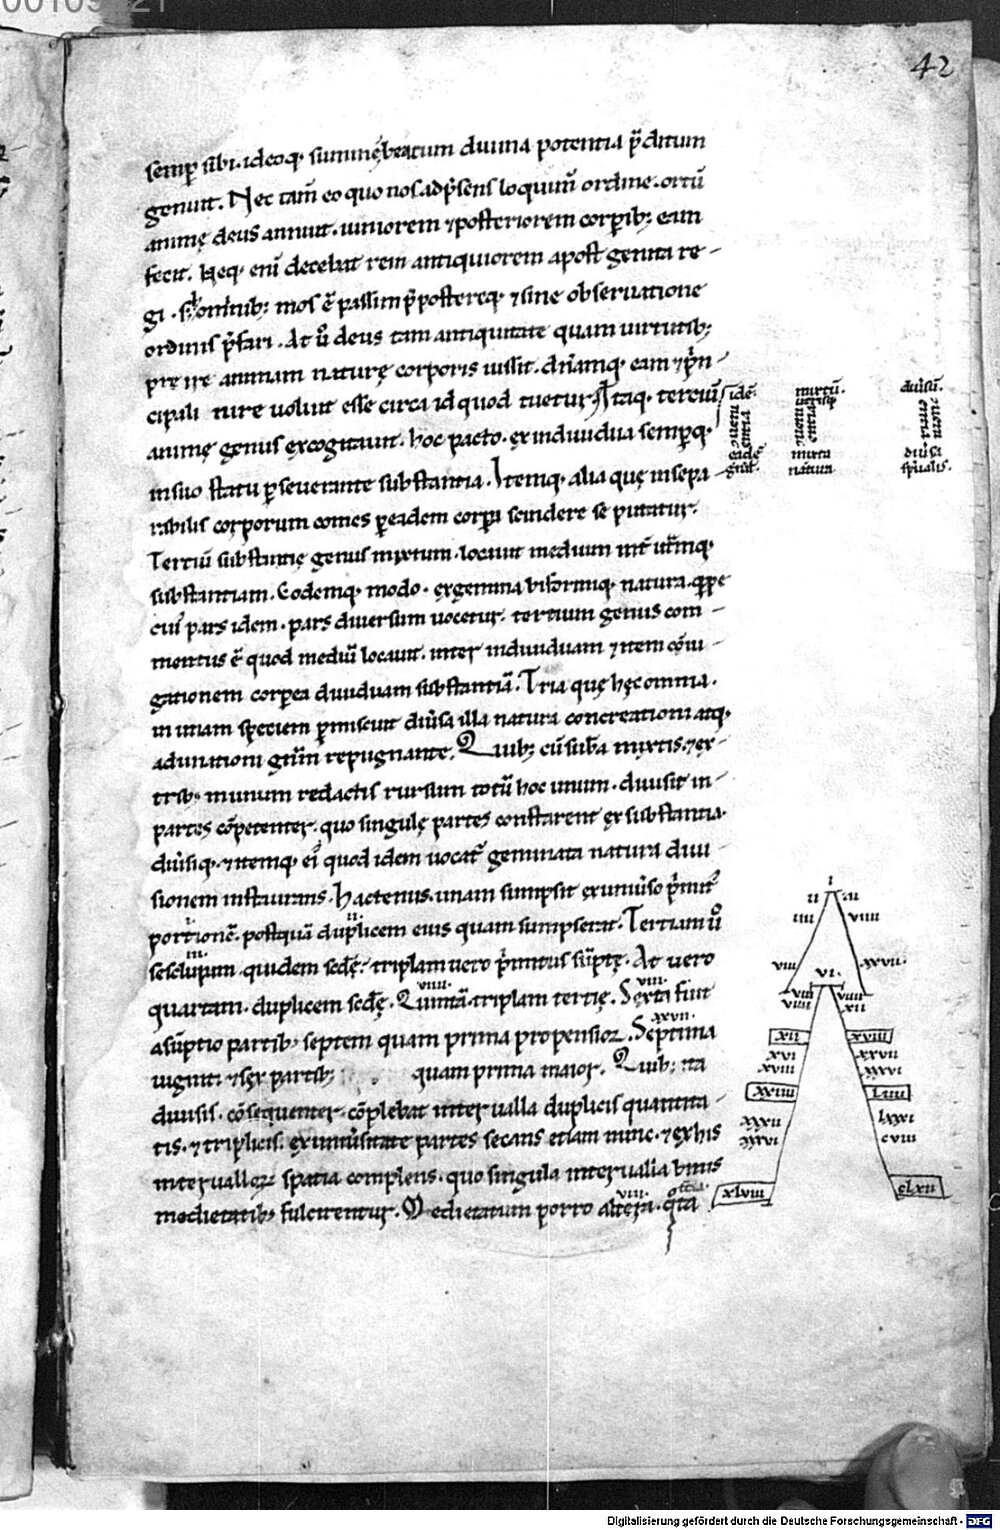 42
semp sibi. ideoq; summę beatum diuina potentia p̄ditum
genuit. Nec tam̄ eo quo nos ad p̄sens loquim̄ ordine. ortū
animę deus annuit. iuniorem ⁊ posteriorem corporib; eam
fecit. Neq; eni decebat rem antiquiorem a post genita re-
gi. Sed hominib; mos ē passim p̄postereq; ⁊ sine obseruatione
ordinis p̄fari. At ū deus tam antiquitate quam uirtutib;
pre ire animam naturę corporis iussit. dn̄amq; eam ⁊ prin-
cipali iure uoluit esse circa id quod tuetur. Itaq; terciū
animę genus excogitauit. hoc pacto. ex indiuidua semperq;
in suo statu perseuerante substantia. Itemq; alia quę insepa-
rabilis corporum comes per eadem corpora scindere se putatur.
Terciū substantię genus mixtum. locauit medium int̄ utramq;
substantiam. Eodemq; modo. ex gemina biformiq; natura. q̄ppe
cui pars idem. pars diuersum uocetur. tertium genus com-
mentus ē quod mediū locauit. inter indiuiduam ⁊ item coniu-
gationem corporea diuiduam substantiā. Tria quę hęc omnia.
in unam speciem permiscuit diuersa illa natura concretioni atq;
adunationi generum repugnante. Quib; cū substantia mixtis. ⁊ ex
trib; in unum redactis rursum totū hoc unum. diuisit in
partes cōpetenter. quo singulę partes constarent ex substantia
diuersiq; ⁊ itemq; ei quod idem uocat̄ geminata natura diui-
sionem instaurans. Hactenus. unam sumpsit ex uniuerso primit̄
portionē. post quā duplicem eius quam sumpserat. Tertiam ū
sesclupam quidem scd̄ę. triplam uero primitus sūptę. At uero
quartam. duplicem scd̄ę. Quintā. triplam tertię. Sexta fuit
asūptio partib; septem quam prima propensior. Septima
uiginti ⁊ sex partib; quam prima maior. Quib; ita
diuisis. cōsequenter. cōplebat interualla duplicis quantita-
tis. ⁊ triplicis. ex uniuersitate partes secans etiam nunc. ⁊ ex his
interuallorum spatia complens. quo singula interualla binis
medietatib; fulcirentur. Medietatum porro altera. q̄ta
idē. mixtū. diuisū.
mixta diuisa
natura spualis.
i
ii iii
iiii viiii
viii xxvii.
vi.
viii viiii
viiii xii
xii xviii
xvi xxvii
xviii xxxvi
xxiiii Liiii
xxxii Lxxxi
xxxvi cviii
xlviii clxii
Digitalisierung gefördert durch die Deutsche Forschungsgemeinschaft - DFG